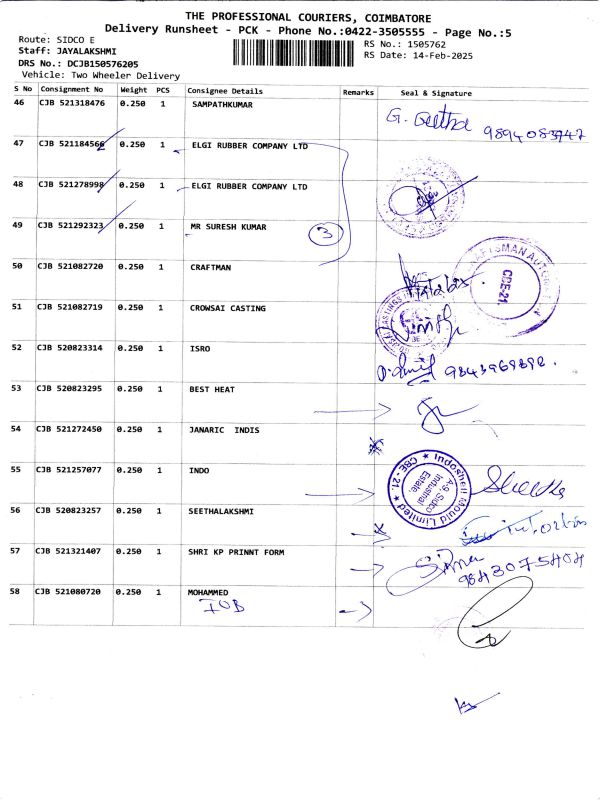 THE PROFESSIONAL COURIERS, COIMBATORE
Delivery Runsheet - PCK - Phone No.:0422-3505555 - Page No.:5
Route: SIDCO E
RS No.: 1505762
Staff: JAYALAKSHMI
RS Date: 14-Feb-2025
DRS No.: DCJB150576205
Vehicle: Two Wheeler Delivery
S No Consignment No Weight PCS Consignee Details Remarks Seal & Signature
46 CJB 521318476 0.250 1 SAMPATHKUMAR G. Geetha 9894083747
47 CJB 521184566 0.250 1 ELGI RUBBER COMPANY LTD
48 CJB 521278998 0.250 1 ELGI RUBBER COMPANY LTD
49 CJB 521292323 0.250 1 MR SURESH KUMAR 3
50 CJB 521082720 0.250 1 CRAFTMAN
CBE-21.
51 CJB 521082719 0.250 1 CROWSAI CASTING
52 CJB 520823314 0.250 1 ISRO 9843969892.
53 CJB 520823295 0.250 1 BEST HEAT
54 CJB 521272450 0.250 1 JANARIC INDIS
55 CJB 521257077 0.250 1 INDO
Indoshell Mould Limited
A-9, Sidco
Industrial
Estate,
CBE - 21.
56 CJB 520823257 0.250 1 SEETHALAKSHMI
57 CJB 521321407 0.250 1 SHRI KP PRINNT FORM
9843075404
58 CJB 521080720 0.250 1 MOHAMMED
IOB